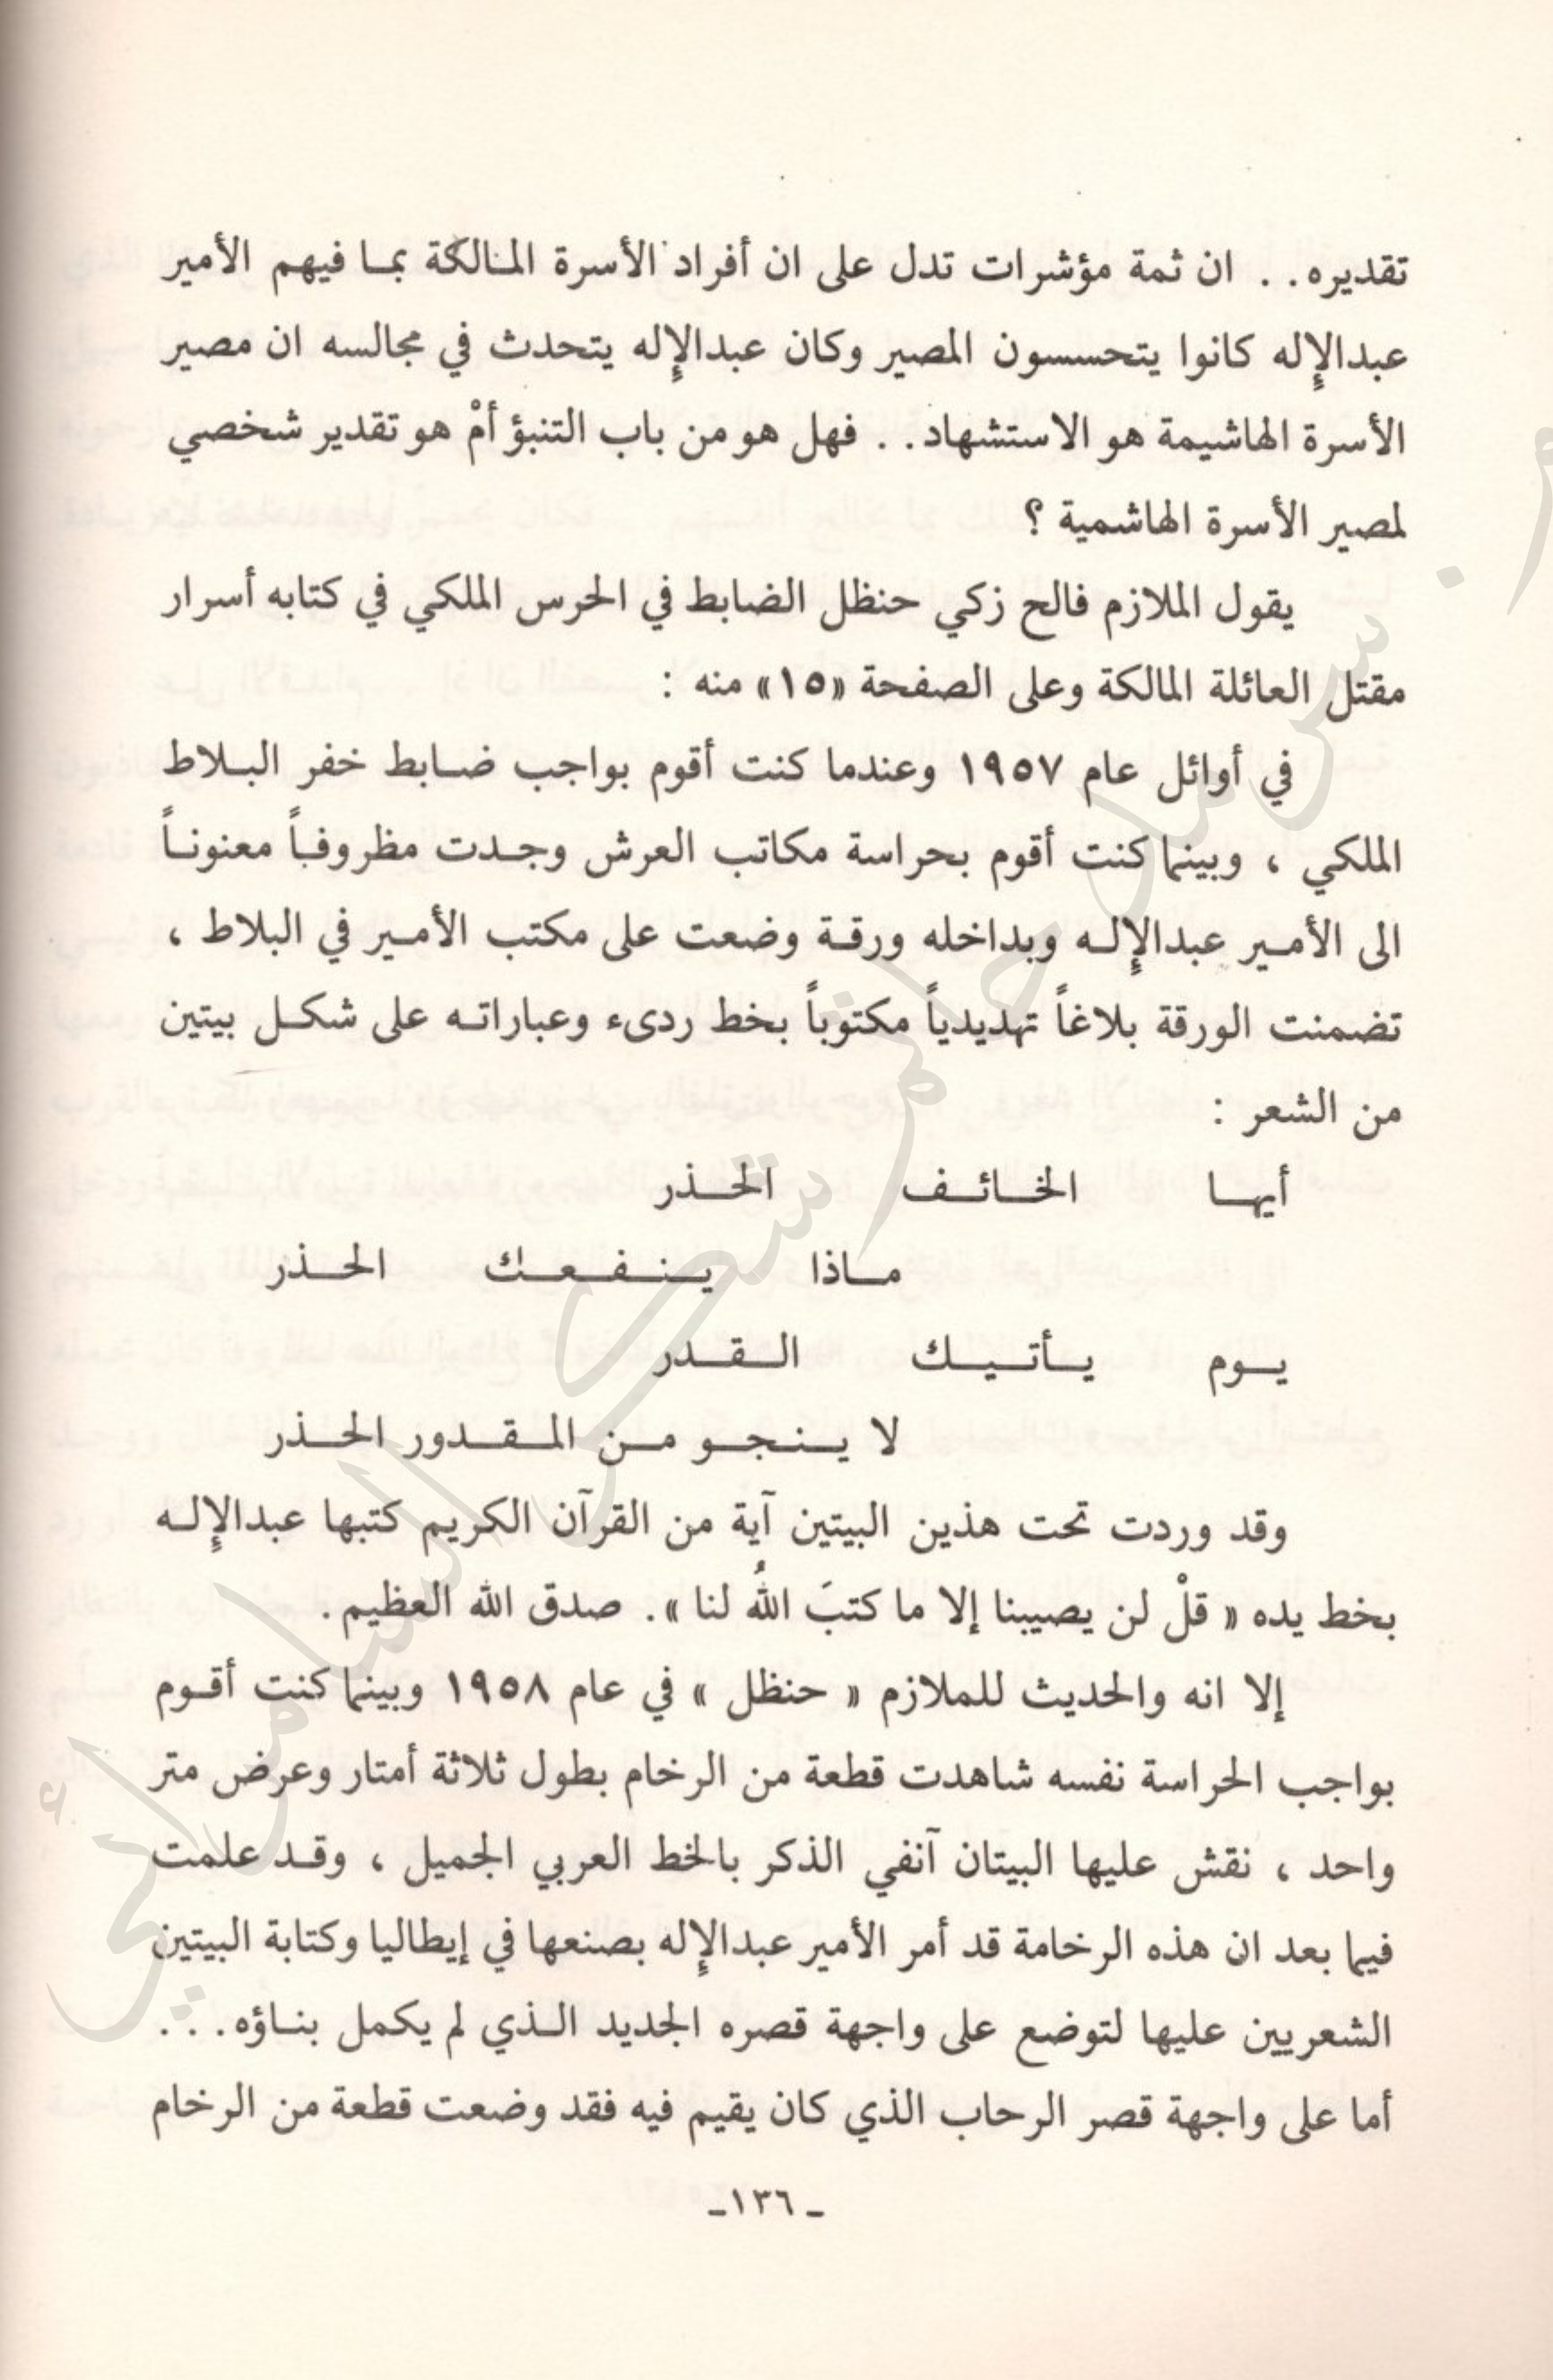 تقديره. . ان ثمة مؤشرات تدل على ان أفراد الأسرة المالكة بما فيهم الأمير
عبدالإله كانوا يتحسسون المصير وكان عبدالإله يتحدث في مجالسه ان مصير
الأسرة الهاشيمة هو الاستشهاد. . فهل هو من باب التنبؤ أمْ هو تقدير شخصي
لمصير الأسرة الهاشمية ؟
يقول الملازم فالح زكي حنظل الضابط في الحرس الملكي في كتابه أسرار
مقتل العائلة المالكة وعلى الصفحة «١٥» منه :
في أوائل عام ١٩٥٧ وعندما كنت أقوم بواجب ضابط خفر البلاط
الملكي ، وبينما كنت أقوم بحراسة مكاتب العرش وجدت مظروفاً معنوناً
الى الأمير عبدالإله وبداخله ورقة وضعت على مكتب الأمير في البلاط ،
تضمنت الورقة بلاغاً تهديدياً مكتوباً بخط ردىء وعباراته على شكل بيتين
من الشعر :
أيها الخائف الحذر
ماذا ينفعك الحذر
يوم يأتيك القدر
لا ينجو من المقدور الحذر
وقد وردت تحت هذين البيتين آية من القرآن الكريم كتبها عبدالإله
بخط يده « قلْ لن يصيبنا إلا ما كتبَ اللهُ لنا ». صدق الله العظيم .
إلا انه والحديث للملازم « حنظل » في عام ١٩٥٨ وبينما كنت أقوم
بواجب الحراسة نفسه شاهدت قطعة من الرخام بطول ثلاثة أمتار وعرض متر
واحد ، نقش عليها البيتان آنفي الذكر بالخط العربي الجميل ، وقد علمت
فيما بعد ان هذه الرخامة قد أمر الأمير عبدالإله بصنعها في إيطاليا وكتابة البيتين
الشعريين عليها لتوضع على واجهة قصره الجديد الذي لم يكمل بناؤه. . .
أما على واجهة قصر الرحاب الذي كان يقيم فيه فقد وضعت قطعة من الرخام
ـ ١٣٦ـ